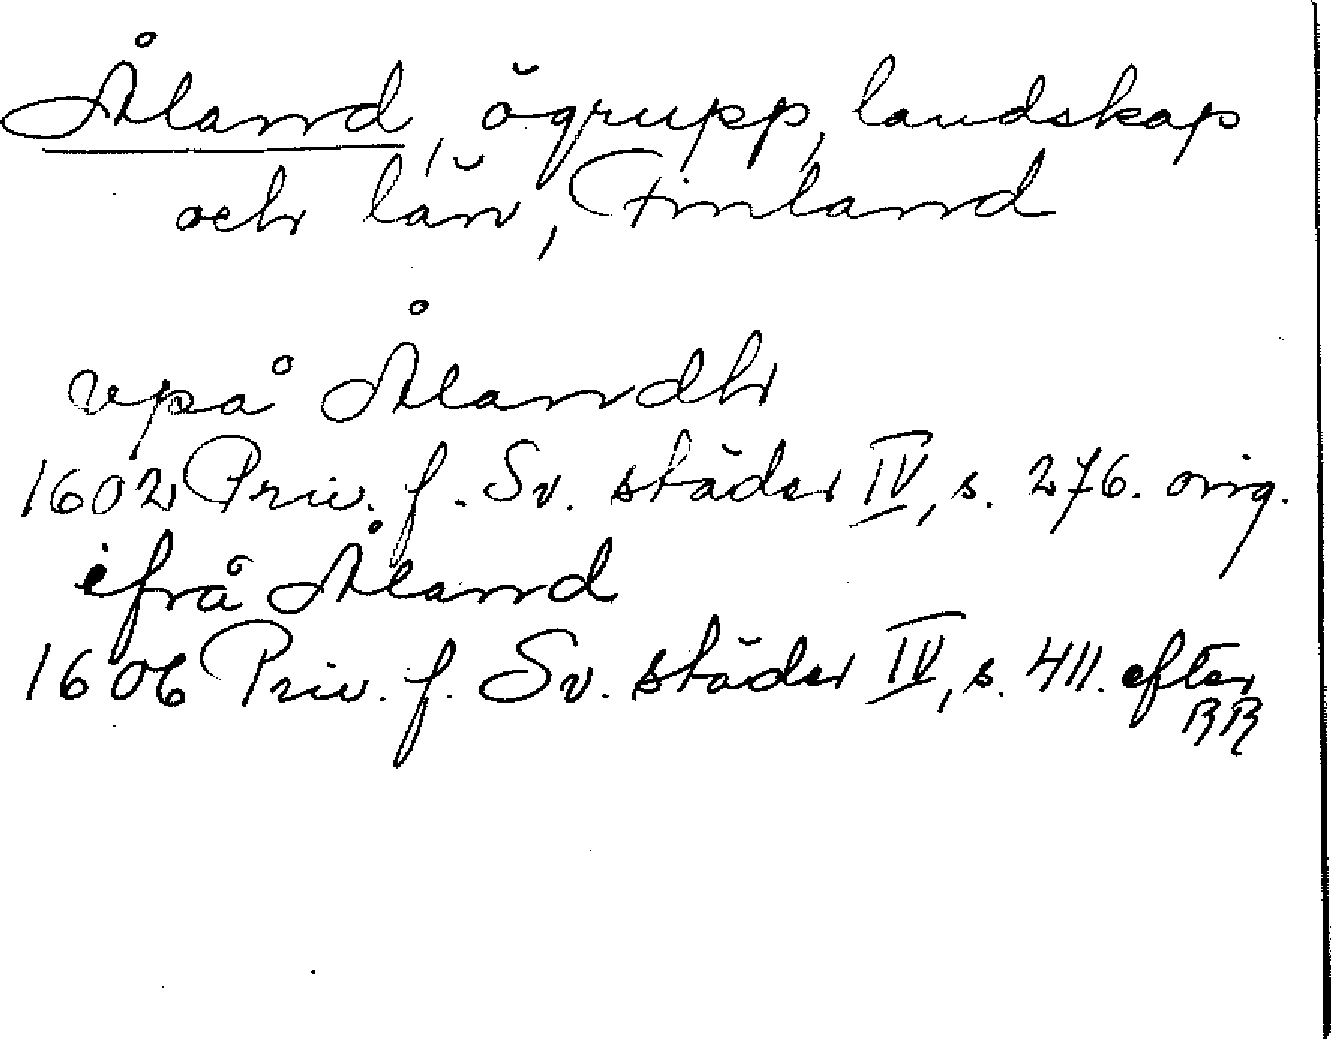 Åland, ögrupp, landskap
och län, Finland
vpå Ålandh
1602 Priv. f. Sv. städer IV, s. 276. orig.
ifrå Åland
1606 Priv. f. Sv. städer IV, s. 411. efter
RR